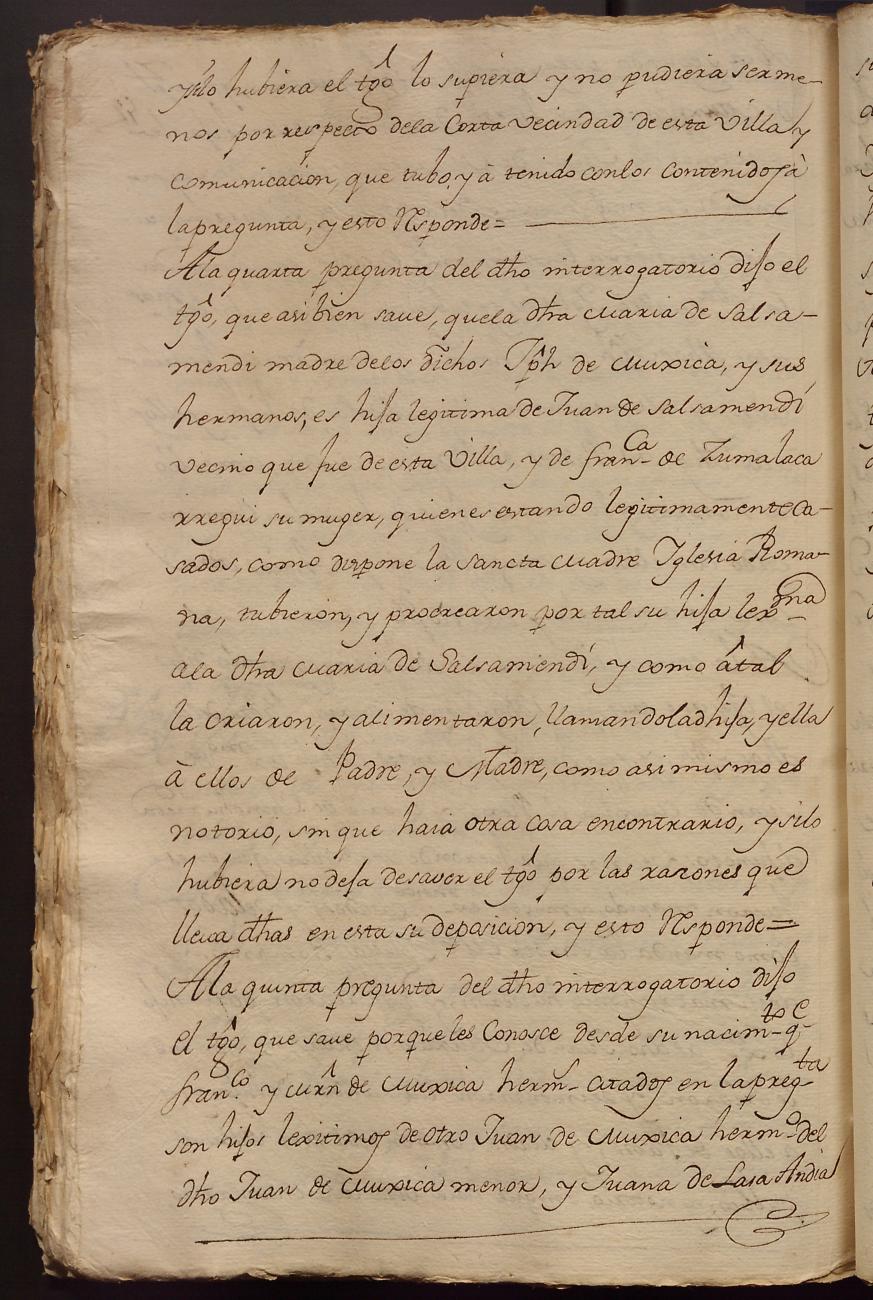 ysilo hubiera el tgô lo supiera y no pudiera ser me-
nos por respecto dela Corta vecindad de esta Villa y
comunicacion, que tubo, y â tenido conlos contenidos â
la pregunta, y esto Responde=
A la quarta pregunta del dho interrogatorio dijo el
tgô, que asi bien save, quela dha Maria de Salsa-
mendi madre delos dichos Jph de Muxica, y sus
hermanos, es hija legitima de Juan de Salsamendi
vecino que fue de esta Villa, y de franca de Zumalaca
rregui su muger, quienes estando legitimamente Ca-
sados, como dispone la Sancta Madre Iglesia Roma-
na, tubieron, y procrearon por tal su hija lexma
ala dha Maria de Salsamendi, y como âtal
la criaron, y alimentaron, llamandola dhija, y ella
â ellos de Padre, y Madre, como asi mismo es
notorio, sin que haia otra cosa encontrario, y silo
hubiera no deja desaver el tgô por las razones que
lleva dhas en esta su deposicion, y esto Responde=
A la quinta pregunta del dho interrogatorio dijo
el tgô, que save porque les Conosce desde su nacimto qe
franco y Mrn de Muxica herms citados en la pregta
son hijos lexitimos de otro Juan de Muxica hermo del
dho Juan de Muxica menor, y Juana de Lasa Andia